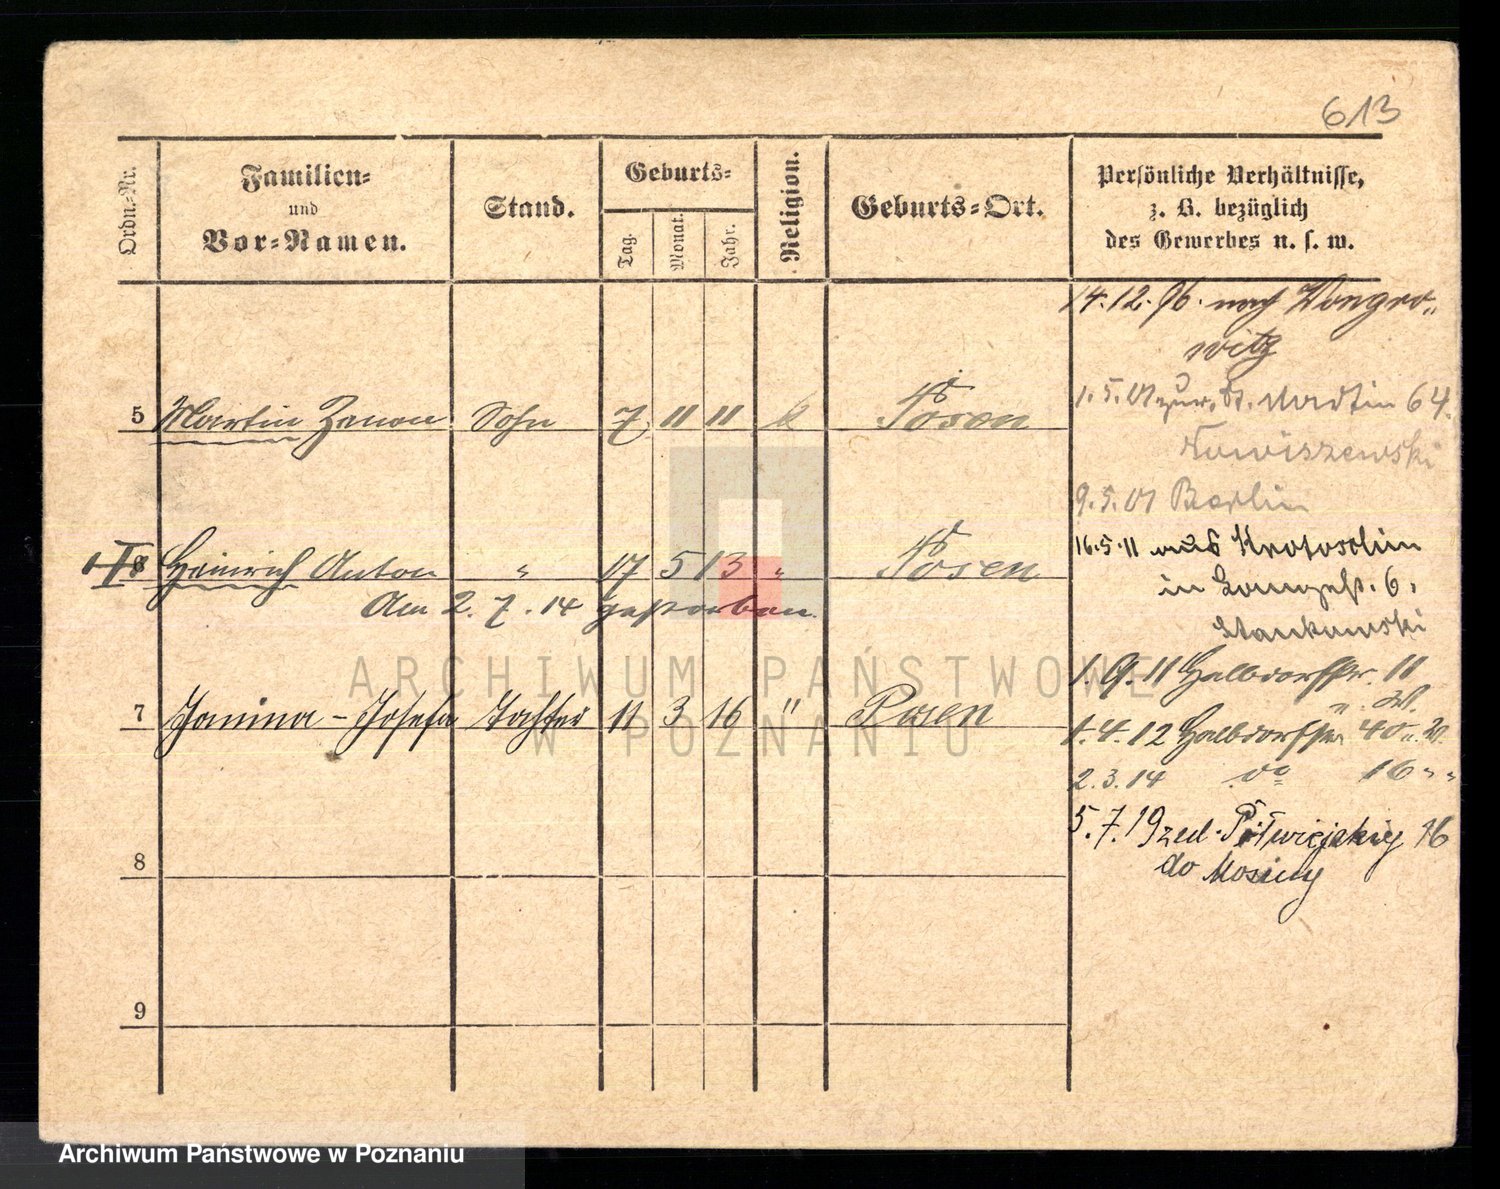 613
Ordn.-Nr.
Familien-
und
Vor-Namen.
Stand.
Geburts-
Tag.
Monat.
Jahr.
Religion.
Geburts-Ort.
Persönliche Verhältnisse,
z. B. bezüglich
des Gewerbes u. s. w.
14.12.96. nach Wongro-
witz
1.5.01 zur. St. Martin 64.
9.5.01 Berlin
16.5.11 aus Krotoschin
in Langestr. 6.
Stankowski
1.9.11 Halbdorfstr. 11
1.4.12 Halbdorfstr 40
2.3.14 do 16 " "
5.7.19 zed. Półwiejskiej 16
do Mosiny
5 Martin Zenon Sohn 7 11 11 k Posen
Heinrich Anton " 17 5 13 " Posen
Am 2.7.14 gestorben.
7 Janina - Josefa Tochter 11 3 16 " Posen
8
9
ARCHIWUM PAŃSTWOWE
W POZNANIU
Archiwum Państwowe w Poznaniu